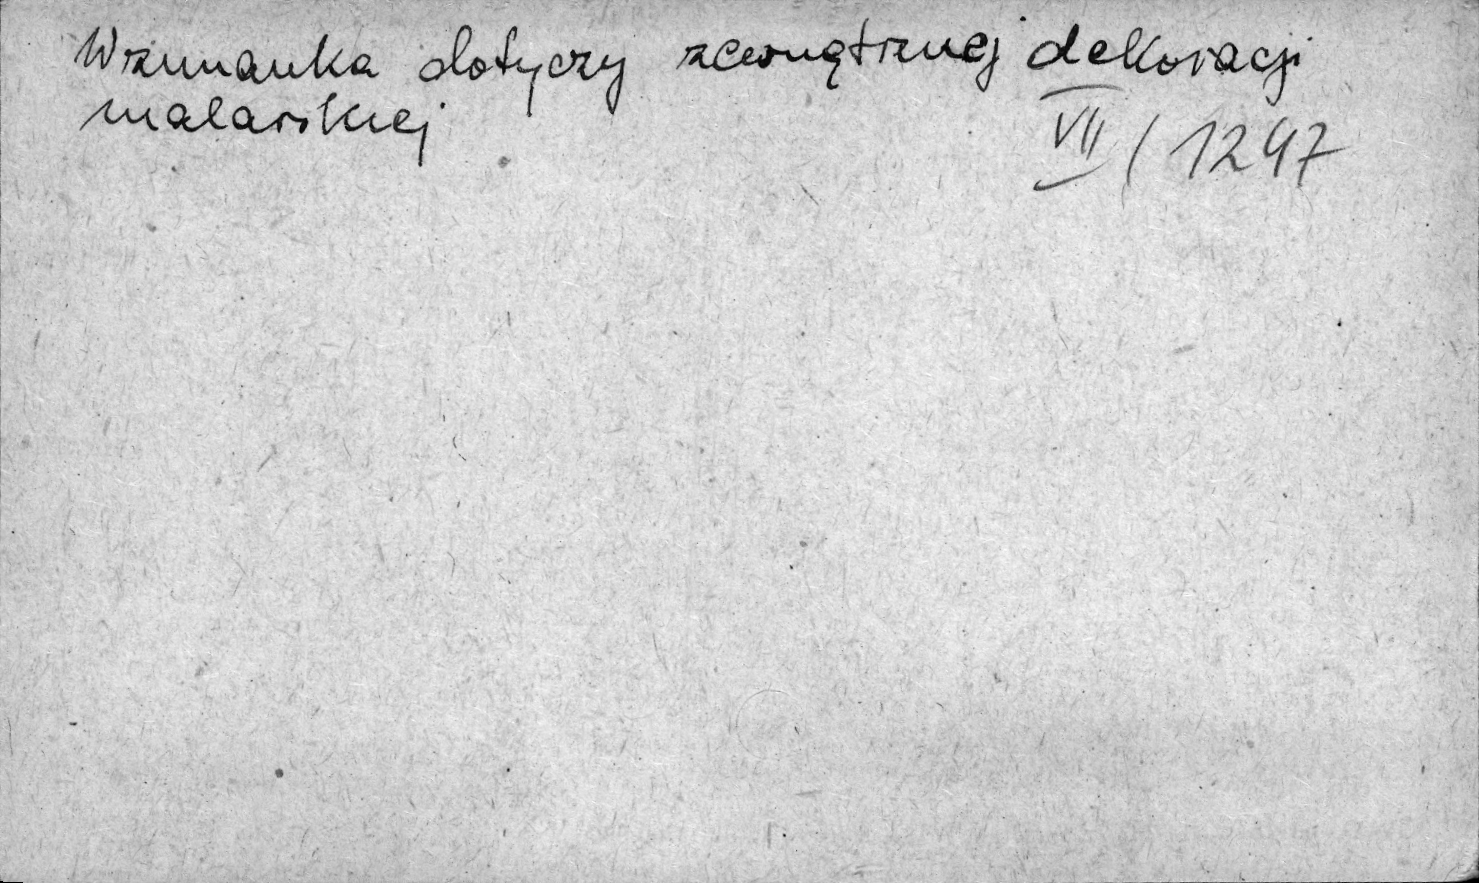 Wzmianka dotyczy zewnętrznej dekoracji
malarskiej
VII / 1247